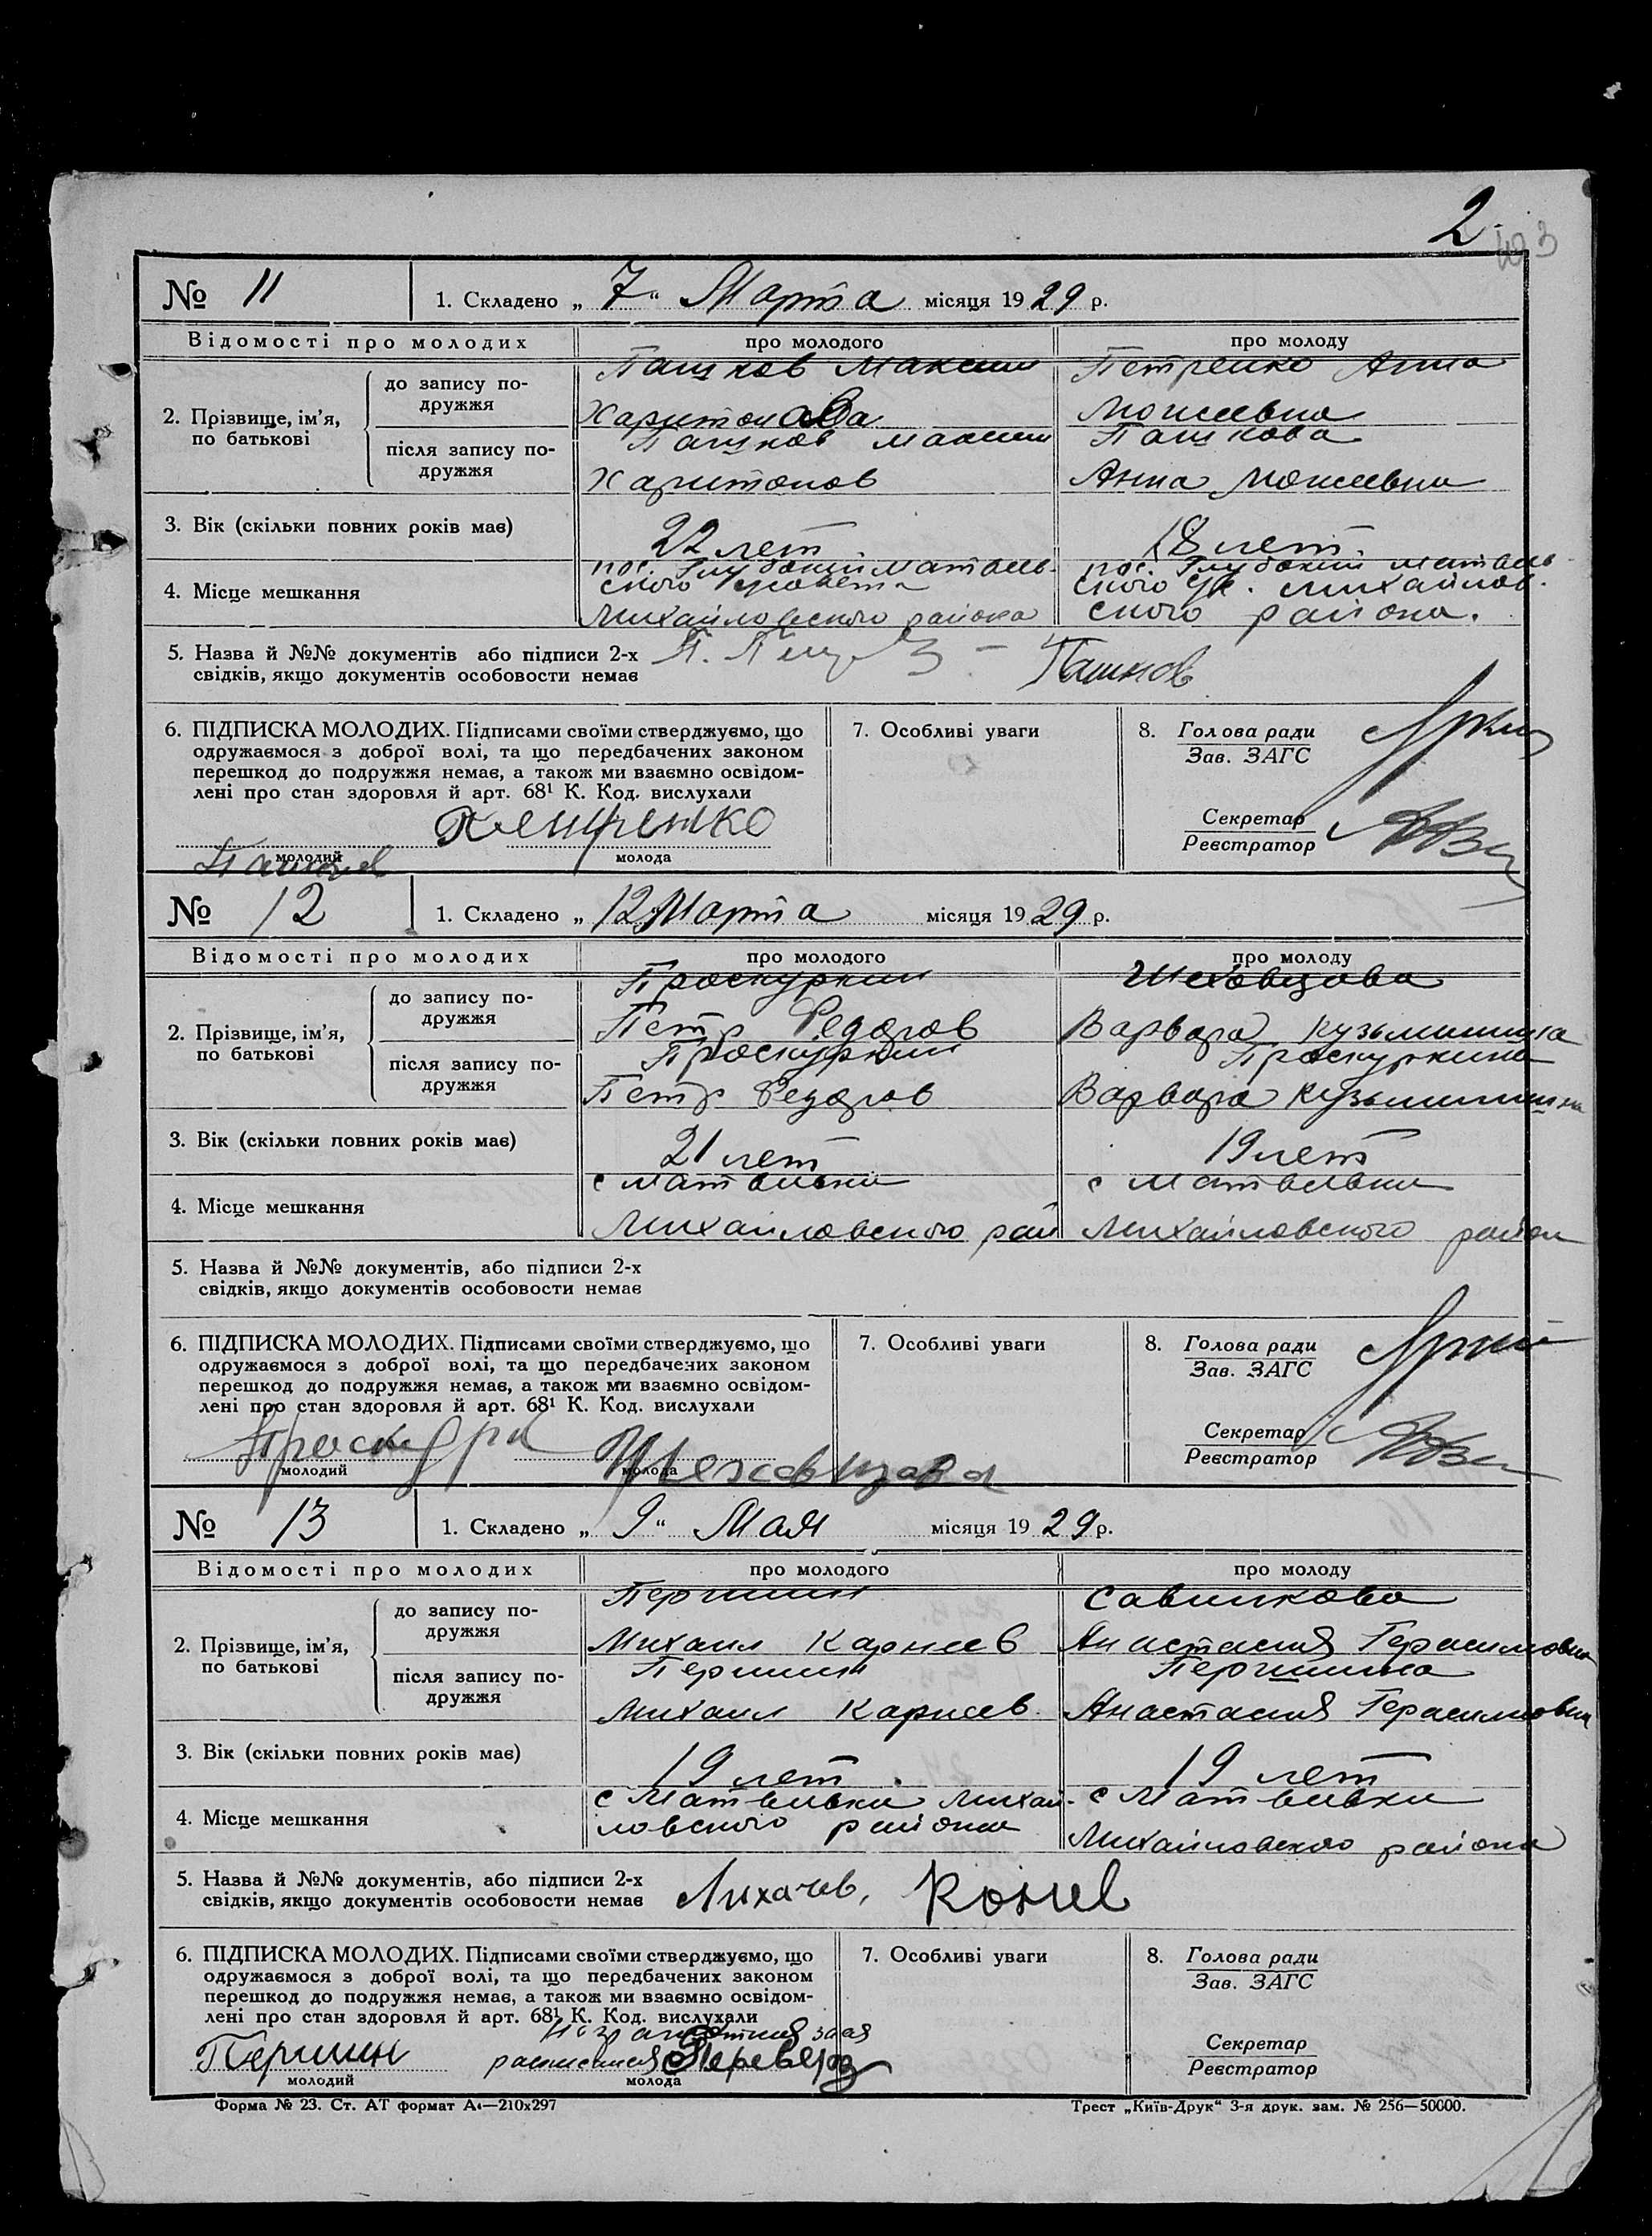 2.
№ 11 1. Складено „ 7 “ Марта місяця 1929 р.
Відомості про молодих про молодого про молоду
2. Прізвище, ім’я, по батькові
до запису по-
дружжя
Пашков Максим
Харитонова
Петренко Анна
Моисеевна
після запису по-
дружжя
Пашков Максим
Харитонов
Пашкова
Анна Моисеевна
3. Вік (скільки повних років має) 22 лет. 18 лет.
4. Місце мешкання
пос. Глубокий
ского
Михайловского района
пос. Глубокий
ского Михайлов-
ского района.
5. Назва й №№ документів або підписи 2-х
свідків, якщо документів особовости немає
Пашков
6. ПІДПИСКА МОЛОДИХ. Підписами своїми стверджуємо, що
одружаємося з доброї волі, та що передбачених законом
перешкод до подружжя немає, а також ми взаємно освідом-
лені про стан здоровля й арт. 68¹ К. Код. вислухали
Петренко
молодий молода
7. Особливі уваги
8. Голова ради
Зав. ЗАГС
Секретар
Реєстратор
№ 12 1. Складено „ 12 Марта місяця 1929 р.
Відомості про молодих про молодого про молоду
2. Прізвище, ім’я,
по батькові
до запису по-
дружжя
Проскуркин
Петр Федоров
Шеховцова
Варвара
після запису по-
дружжя
Проскуркин
Петр Федоров
Проскуркина
Варвара
3. Вік (скільки повних років має) 21 лет 19 лет
4. Місце мешкання
с Матвеевки
Михайловского рай
с Матвеевки
Михайловского район
5. Назва й №№ документів, або підписи 2-х
свідків, якщо документів особовости немає
6. ПІДПИСКА МОЛОДИХ. Підписами своїми стверджуємо, що
одружаємося з доброї волі, та що передбачених законом
перешкод до подружжя немає, а також ми взаємно освідом-
лені про стан здоровля й арт. 68¹ К. Код. вислухали
Шеховцова
молодий молода
7. Особливі уваги
8. Голова ради
Зав. ЗАГС
Секретар
Реєстратор
№ 13 1. Складено „ 9 “ Мая місяця 1929 р.
Відомості про молодих про молодого про молоду
2. Прізвище, ім’я,
по батькові
до запису по-
дружжя
Першин
Михаил Карнеев
Савинкова
Анастасия Герасимовна
після запису по-
дружжя
Першин
Михаил Карнеев
Першина
Анастасия Герасимовна
3. Вік (скільки повних років має) 19 лет. 19 лет
4. Місце мешкання
с Матвеевки Михай-
ловского района
с Матвеевки
Михайловского района
5. Назва й №№ документів, або підписи 2-х
свідків, якщо документів особовости немає
Лихачев, Конев
6. ПІДПИСКА МОЛОДИХ. Підписами своїми стверджуємо, що
одружаємося з доброї волі, та що передбачених законом
перешкод до подружжя немає, а також ми взаємно освідом-
лені про стан здоровля й арт. 68¹ К. Код. вислухали
Першин
молодий молода
7. Особливі уваги
8. Голова ради
Зав. ЗАГС
Секретар
Реєстратор
Форма № 23. Ст. АТ формат А₄—210х297 Трест „Київ-Друк“ 3-я друк. зам. № 256—50000.